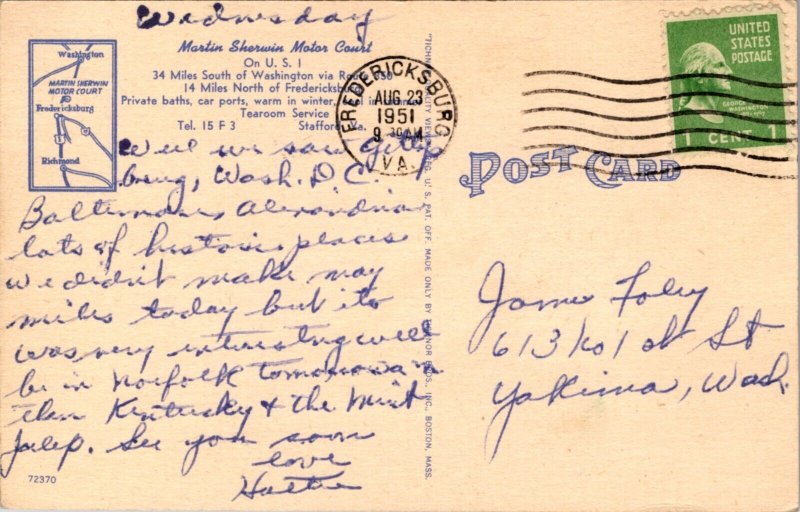 Wednesday
Martin Sherwin Motor Court
On U. S. 1
34 Miles South of Washington via Route 350
14 Miles North of Fredericksburg
Private baths, car ports, warm in winter, cool in summer
Tearoom Service
Tel. 15 F 3 Stafford, Va.
Washington
MARTIN SHERWIN
MOTOR COURT
Fredericksburg
Richmond
Well we saw Gettys
burg, Wash. D.C.
Baltimore Alexandria
lots of historic places
we didn't make may
miles today but its
was very interesting will
be in Norfolk tomorrow
then Kentucky & the Mint
Julep. See you soon
love
Hattie
72370
U. S. PAT. OFF. MADE ONLY BY BROS., INC., BOSTON, MASS.
FREDERICKSBURG
AUG 23
1951
9 30 AM
VA.
UNITED
STATES
POSTAGE
GEORGE
WASHINGTON
1 CENT 1
POST CARD
James Foley
613 No 1st St
Yakima, Wash.